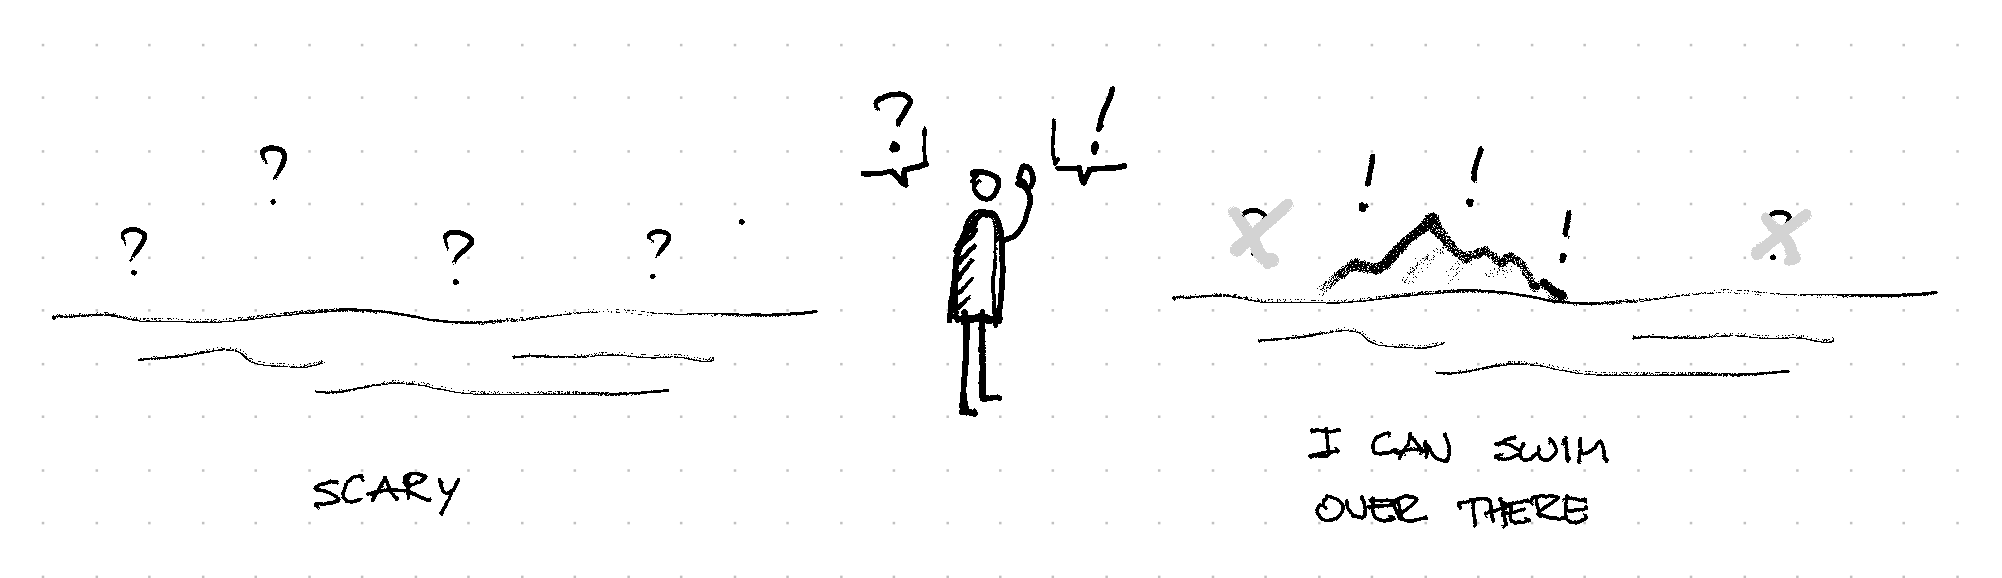 ?
?
?
?
?
!
!
!
!
SCARY
I CAN SWIM
OVER THERE